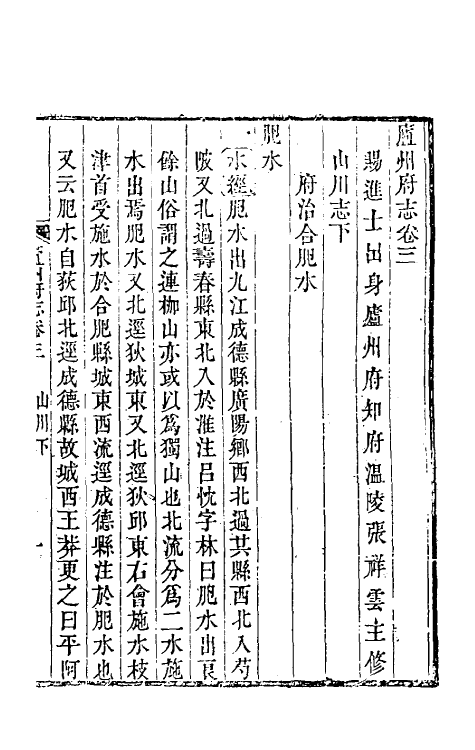 廬州府志卷三
賜進士出身廬州府知府温陵張祥雲主修
山川志下
府治合肥水
肥水
水經肥水出九江成德縣廣陽鄉西北過其縣西北入芍
陂又北過壽春縣東北入於淮注呂忱字林曰肥水出良
餘山俗謂之連枷山亦或以爲獨山也北流分爲二水施
水出焉肥水又北逕狄城東又北逕狄邱東右會施水枝
津首受施水於合肥縣城東西流逕成德縣注於肥水也
又云肥水自荻邱北逕成德縣故城西王莽更之曰平阿
廬州府志卷三 山川下 一